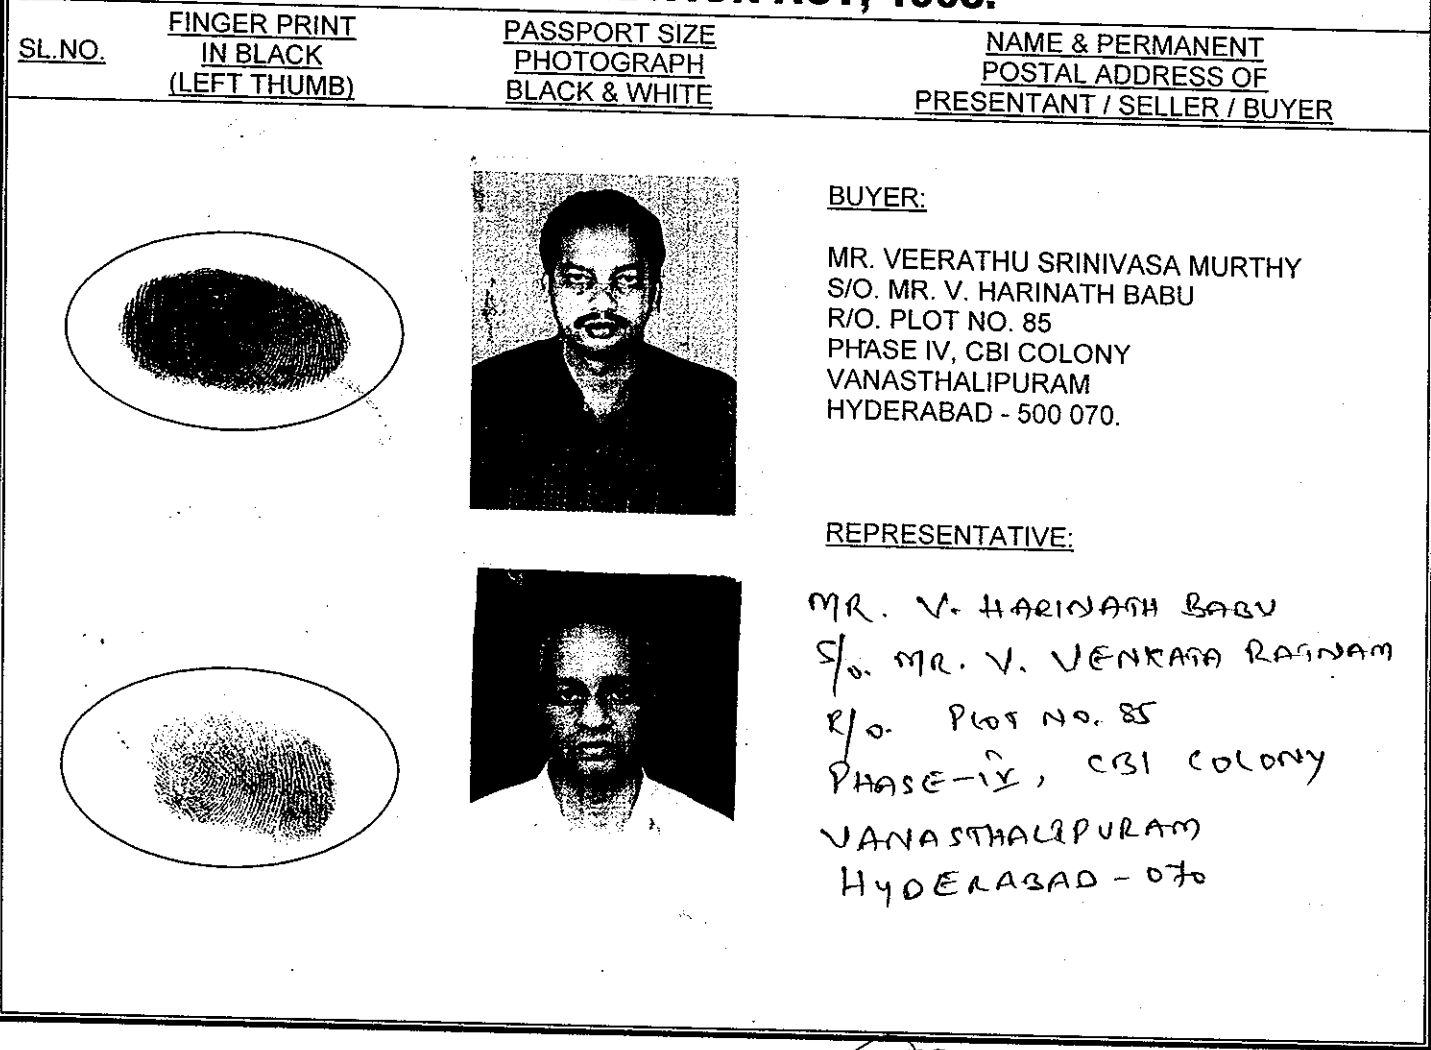 ACT, 1908.
SL.NO.
FINGER PRINT
IN BLACK
(LEFT THUMB)
PASSPORT SIZE
PHOTOGRAPH
BLACK & WHITE
NAME & PERMANENT
POSTAL ADDRESS OF
PRESENTANT / SELLER / BUYER
BUYER:
MR. VEERATHU SRINIVASA MURTHY
S/O. MR. V. HARINATH BABU
R/O. PLOT NO. 85
PHASE IV, CBI COLONY
VANASTHALIPURAM
HYDERABAD - 500 070.
REPRESENTATIVE:
MR. V. HARINATH BABU
S/o. MR. V. VENKATA RATNAM
R/o. PLOT NO. 85
PHASE-IV, CBI COLONY
VANASTHALIPURAM
HYDERABAD - 070